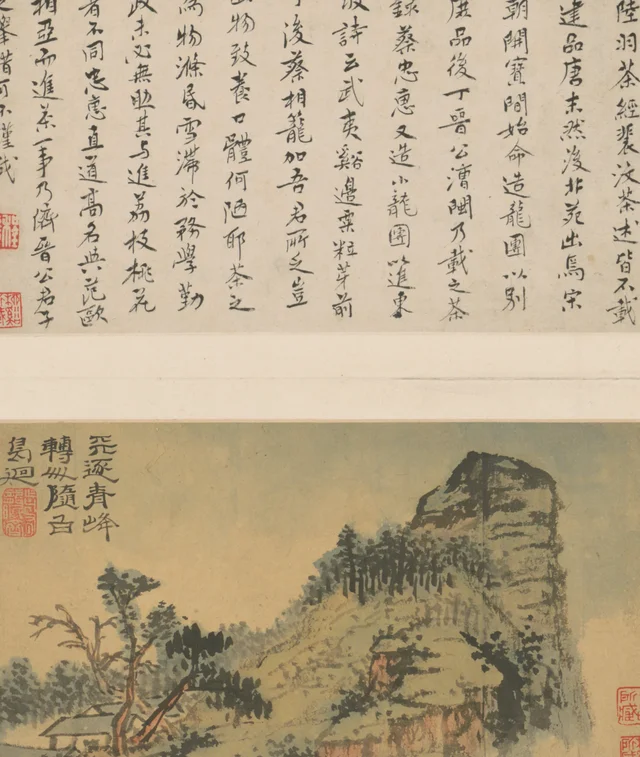 陸羽茶經裴汶茶述皆不載
建品唐末然後北苑出焉宋
朝開寶間始命造龍團以別
庶品後丁晉公漕閩乃載之茶
錄蔡忠惠又造小龍團以進東
坡詩云武夷谿邊粟粒芽前
丁後蔡相籠加吾君所乏豈
此物致養口體何陋耶茶之
為物滌昏雪滯於務學勤
政未必無助其与進荔枝桃花
者不同忠惠直道高名與范歐
相亞而進茶一事乃儕晉公君子
之舉措可不謹哉
逐青峰
轉舟隨白
鳥迴
所藏